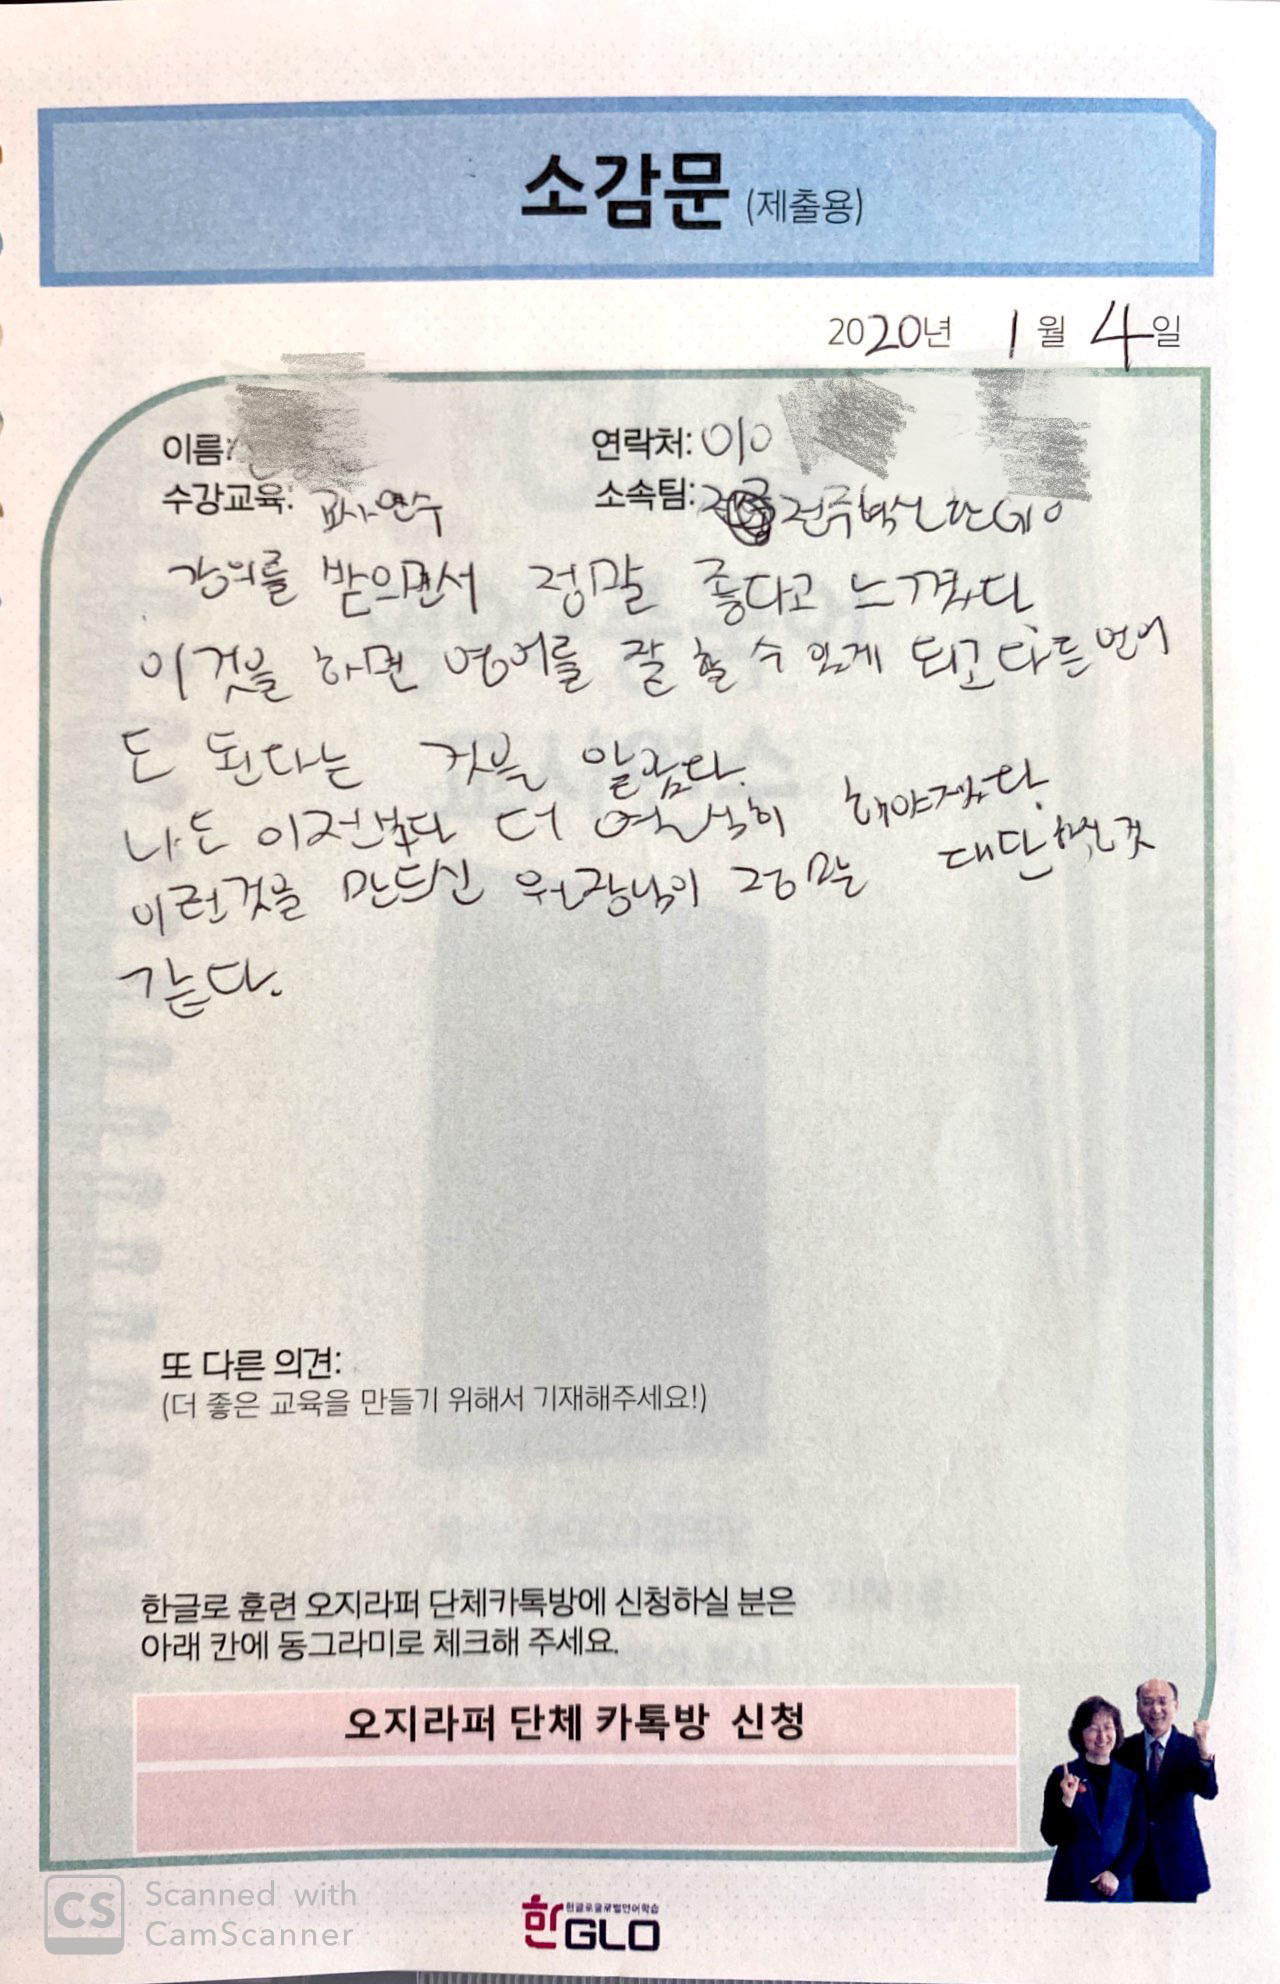 소감문 (제출용)
2020년 1월 4일
이름:
연락처: 010
수강교육: 교사연수
소속팀: 전주혁신한GLO
강의를 받으면서 정말 좋다고 느꼈다.
이것을 하면 영어를 잘 할 수 있게 되고 다른 언어
도 된다는 것을 알았다.
나도 이전보다 더 열심히 해야겠다.
이런것을 만드신 원장님이 정말 대단하신 것
같다.
또 다른 의견:
(더 좋은 교육을 만들기 위해서 기재해주세요!)
한글로 훈련 오지라퍼 단체카톡방에 신청하실 분은
아래 칸에 동그라미로 체크해 주세요.
오지라퍼 단체 카톡방 신청
CS Scanned with
CamScanner
한글로글로벌언어학습
한GLO